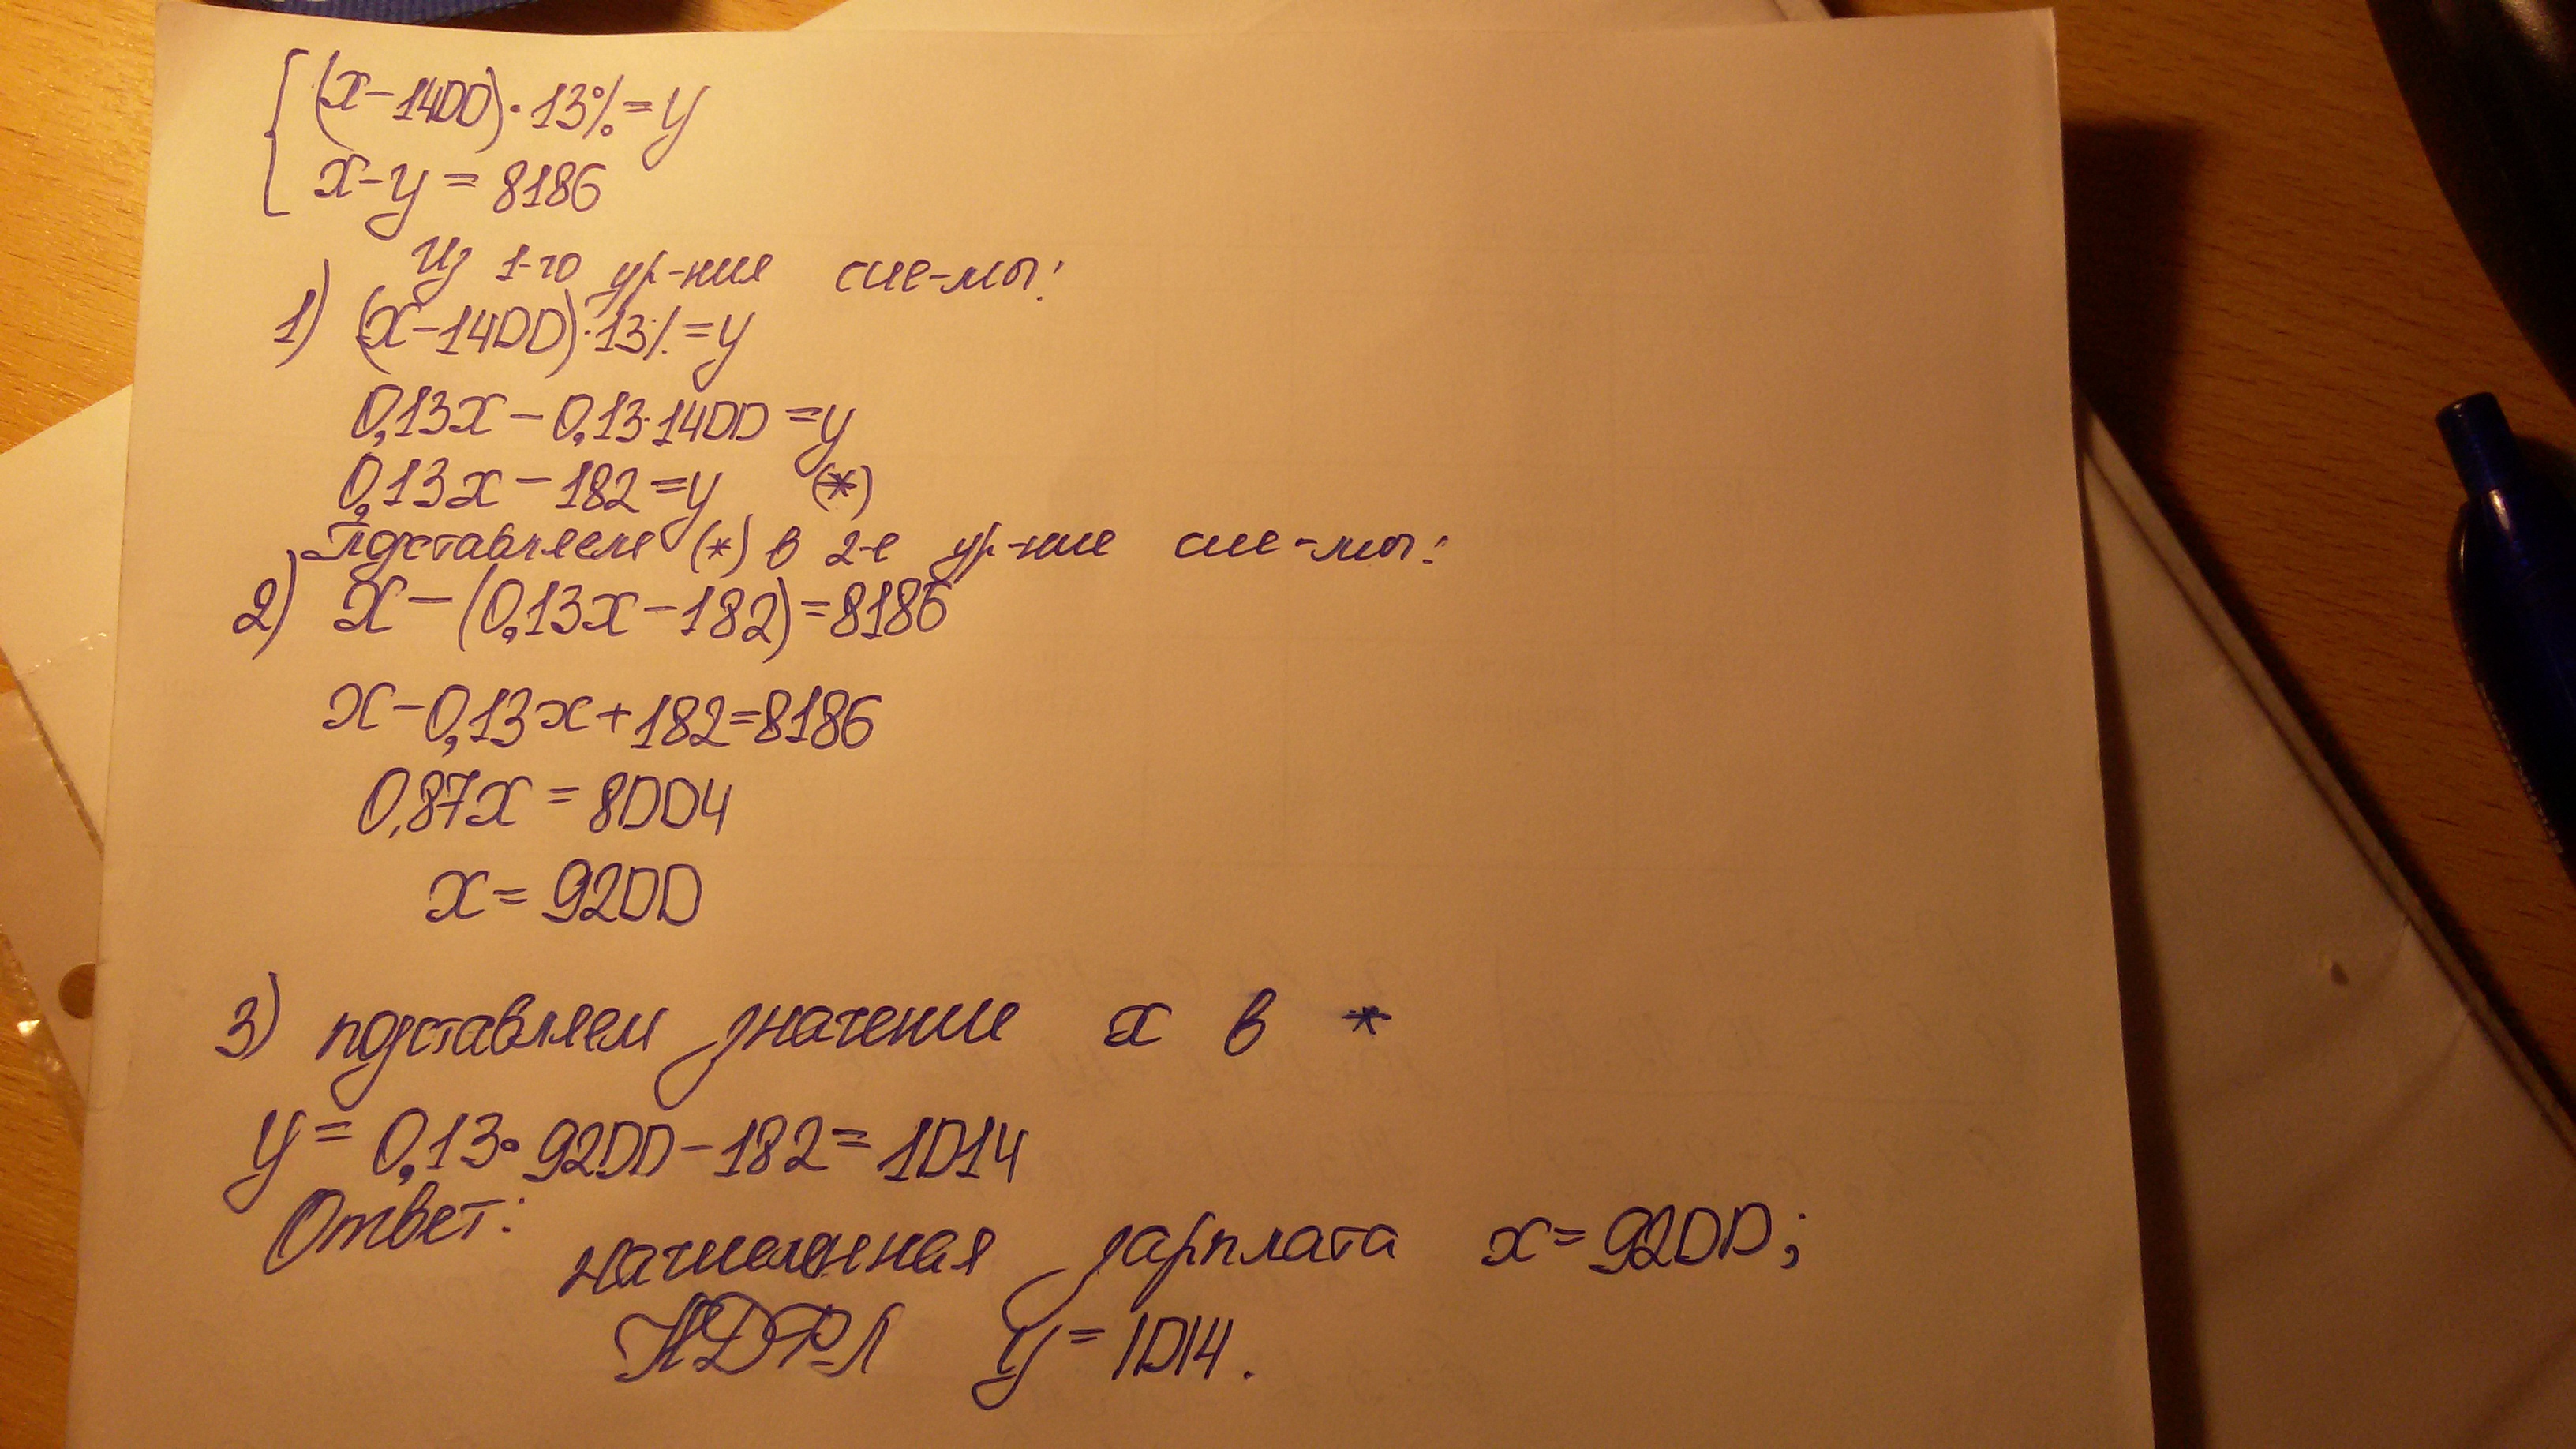 (x-1400)·13%=y
x-y=8186
Из 1-го ур-ния сис-мы:
1) (x-1400)·13%=y
0,13x-0,13·1400=y
0,13x-182=y (*)
Подставляем (*) в 2-е ур-ние сис-мы:
2) x-(0,13x-182)=8186
x-0,13x+182=8186
0,87x=8004
x=9200
3) подставляем значение x в *
y=0,13·9200-182=1014
Ответ: начисленная зарплата x=9200;
НДФЛ y=1014.